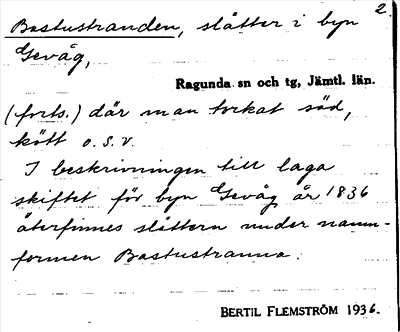 2.
Bastustranden, slåtter i byn
Gevåg,
Ragunda sn och tg, Jämtl. län.
(forts.) där man torkat säd,
kött o.s.v.
I beskrivningen till laga
skiftet för byn Gevåg år 1836
återfinnes slåttern under namn-
formen Bastustranna.
BERTIL FLEMSTRÖM 1936.